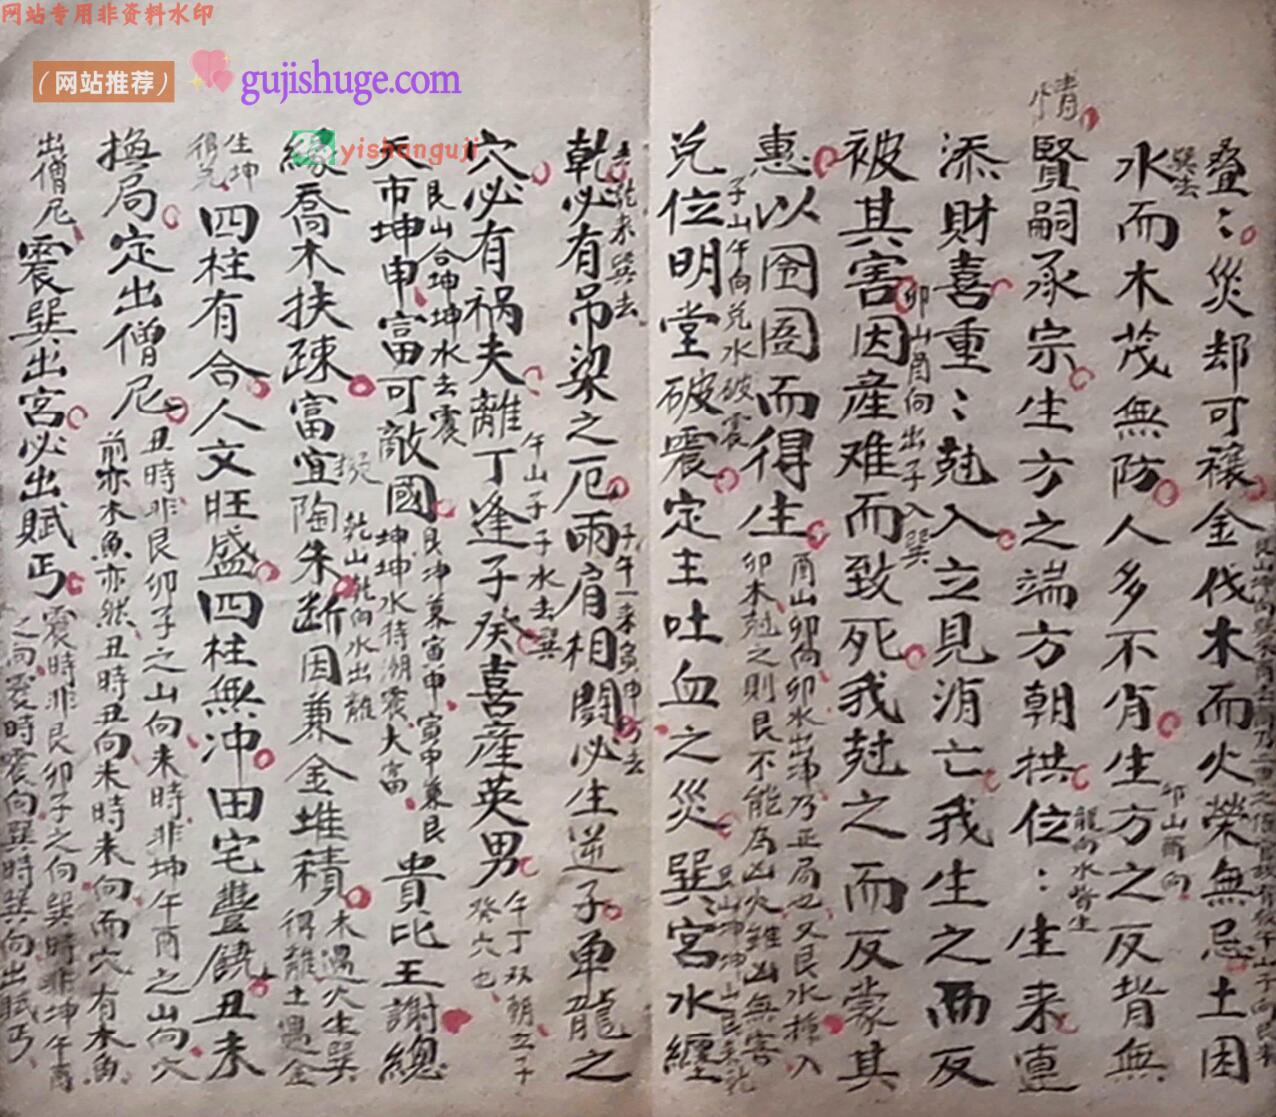 网站专用非资料水印
（网站推荐）
gujishuge.com
yishanguji
情
叠：災却可禳金伐木而火榮無忌土困
水而木茂無防人多不肖生方之反背無
巽去
卯山酉向
賢嗣承宗生方之端方朝拱位：生来連
龍向水皆生
添財喜重：尅入立見消亡我生之而反
被其害因産难而致死我尅之而反蒙其
卯山酉向出子入巽
惠以囹圄而得生
子山午向兑水破震
酉山卯向卯水出沛乃正局也又艮水摧入
卯木尅之則艮不能為凶火雖凶無害
兑位明堂破震定主吐血之災巽宮水纏
艮山坤坤山艮
去乾来巽去
乾必有吊梁之厄兩肩相鬪必生逆子单龍之
子午一来寅申可去
穴必有禍夫離丁逢子癸喜産英男
午山子子水去巽
午丁双朝立子
癸穴也
艮山合坤坤水去震
天市坤申富可敵國
艮沖兼寅申寅申兼艮
坤坤水待朔震大富
貴比王謝總
緣喬木扶疎富宜陶朱断因兼金堆積
擬
乾山乾向水出離
木遇火生巽
得離土遇金
生坤
得兑
四柱有合人文旺盛四柱無冲田宅豐饒丑未
換局定出僧尼
丑時非艮卯子之山向未時非坤午酉之山向穴
前亦木魚亦然丑時丑向未時未向而穴有木魚
出僧尼
震巽出宮必出賦丐
震時非艮卯子之向巽時非坤午酉
之向震時震向巽時巽向出賦丐